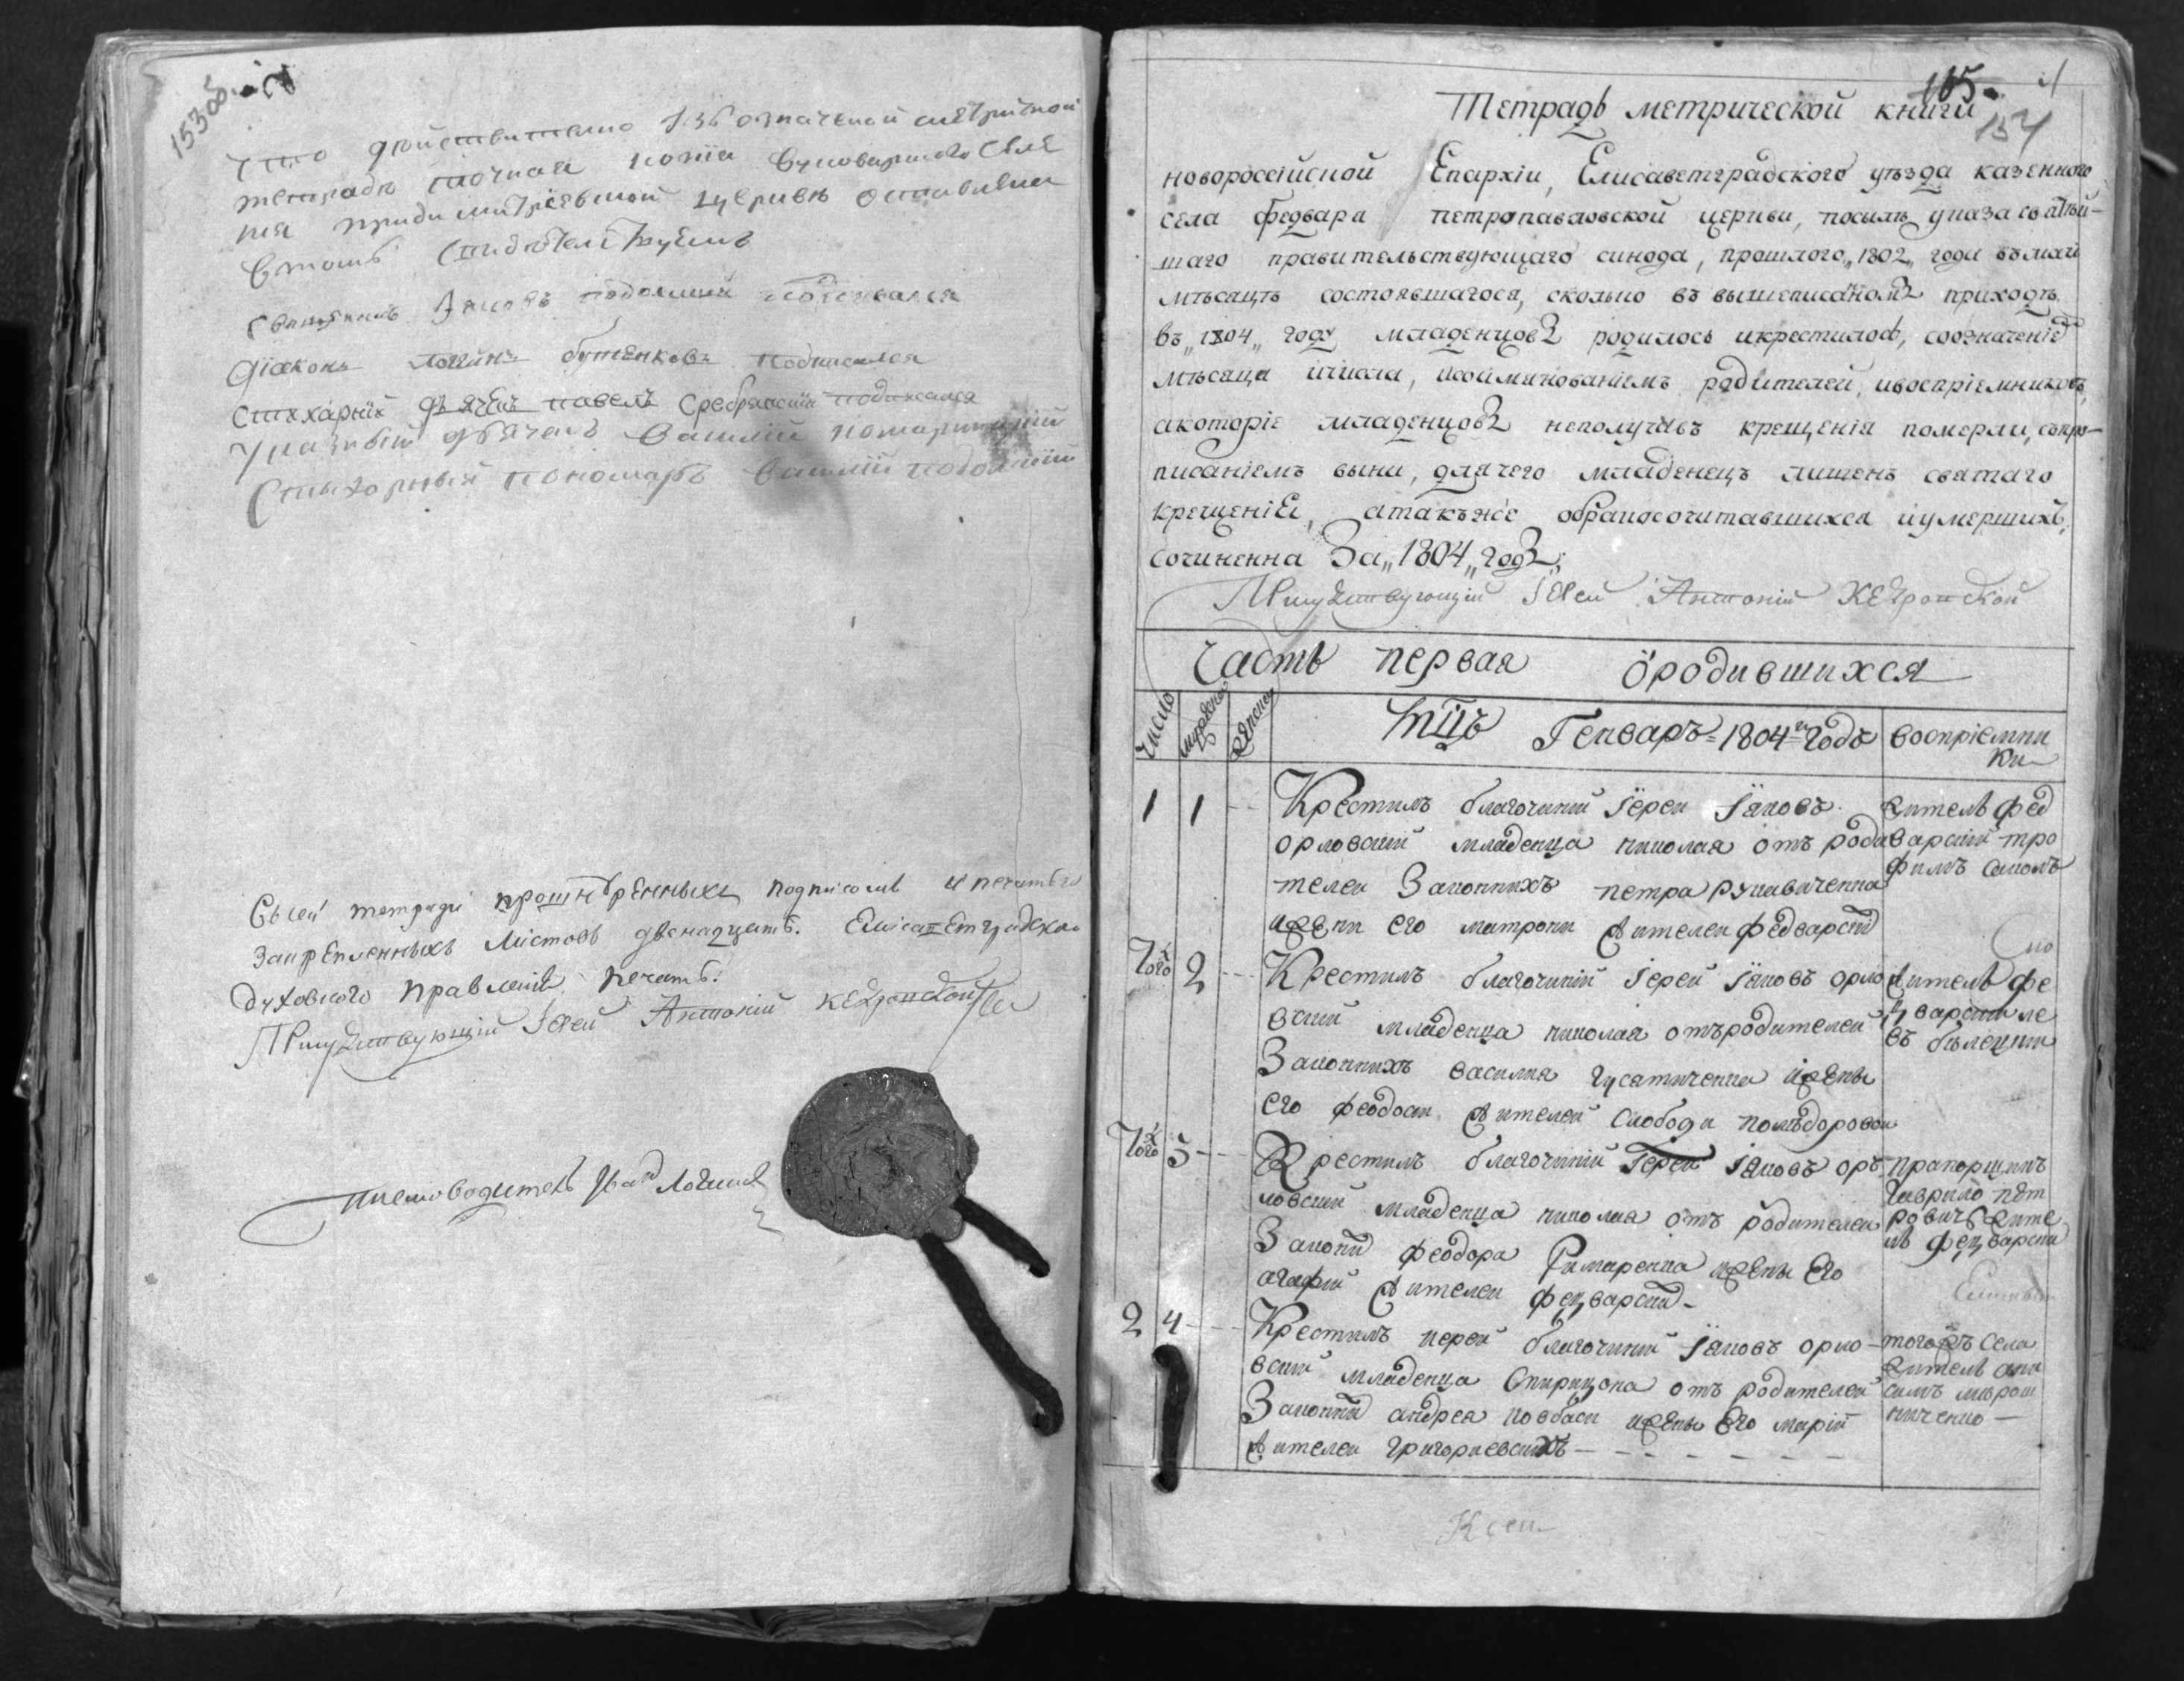 153 об.
что действително 136 означеной метритной
тетради точная копія
при димитріевской церкви оставлена
втомъ свидѣтелствуемъ
священникъ Яковъ подолский подписался
діаконъ логинъ бутенковъ подписался
стихарній дьячекъ павелъ сребрянскій подписался
Указный дьячекъ Василій
Стихорный пономаръ Василій подолскій
Всей тетради прошнурѣнныхъ подписомъ и печатью
закрепленныхъ листовъ двенадцать. Елисаветградскаго
духовного правленія печать.
Присудствующій Іерей Антоній Кедронской
писмоводитель Иван Логинов
165.
154
Тетрадь метрической книги
новороссійской Епархіи, Елисаветградского уѣзда казенного
села федвара петропавловской церкви, посылѣ указа святѣй-
шаго правительствующаго синода, прошлого „1802„ года въ маи
мѣсяцѣ состоявшагося, сколко въ вышеписаномъ приходѣ
въ „1804„ году младенцовъ родилось икрестилос, соозначеніе
мѣсяца ичисла, ипоимянованіемъ родителей, ивоспріемниковъ,
акоторіе младенцовъ неполучивъ крещенія померли, съпро-
писаніемъ вины, длячего младенецъ лишенъ святаго
крещеніе, атакъже обракосочитавшихся иумершихъ,
сочиненна За „1804„ годъ;
Присудствующій Іерей Антоній Кедронской
Часть первая ородившихся
число
мужеска
женска
мцъ Генваръ 1804 годъ
воспріемни
ки
1 1 Крестилъ благочиний Іереи Іяковъ
орловский младенца николая отъ роди
телеи Законнихъ петра рукавиченка
ижени его матрони жителеи федварскихъ
житель фед
варский тро
фимъ
тогож 2 Крестилъ благочиний Іерей Іяковъ орло
вский младенца николая отъродителей
Законнихъ василия гусатиченка ижены
его феодоси жителей слободи
житель фе
дварский ле
въ
тогож 3 Крестилъ благочиний Іерей Іяковъ ор
ловский младенца николая отъ родителеи
Законн феодора Римаренка ижены его
агафии жителеи федварских
прапорщикъ
гаврило пет
ровичъ жите
ль федварски
2 4 Крестилъ иерей благочиний Іяковъ орло
вский младенца Спиридона отъ родителей
Законних андрея ковбаси ижены его марій
жителеи григориевскихъ
тогожъ села
житель ани
симъ мирош
ниченко